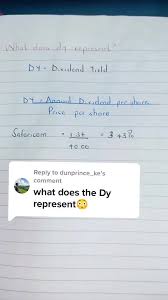 What does dy represent?
DY = Dividend Yield
DY = Annual Dividend per share
Price per share
Safaricom = 1.37 = 3.43%
40.00
Reply to dunprince_ke's
comment
what does the Dy
represent😳